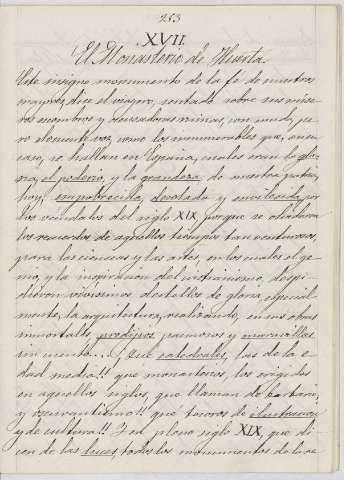 253
XVII.
El Monasterio de Huerta.
Este insigne monumento de la fé de nuestros
mayores, dice el viagero, sentado sobre sus mise-
ros escombros y venerandas ruinas, con muda, pe-
ro elocuente voz, como los innumerables que, en su
caso, se hallan en España, cuales eran la glo-
ria, el poderio, y la grandeza de nuestra patria,
hoy, empobrecida, devorada y envilecida por
los vándalos del siglo XIX, porque se olvidaron
los recuerdos de aquellos tiempos tan venturosos,
para las ciencias y las artes, en los cuales el ge-
nio, y la inspiracion del cristianismo, despi-
dieron vivisimos destellos de gloria especial-
mente, la arquitectura, realizando, en sus obras
inmortales, prodigios pasmosos y maravillas
sin cuento...! Que catedrales, las de la e-
dad media!! que monasterios, los erigidos
en aquellos siglos, que llaman de barbarie,
y oscurantismo!! que tesoros de ilustracion
y de cultura!! Y en pleno siglo XIX, que di-
cen de las luces, todos los monumentos de la re-